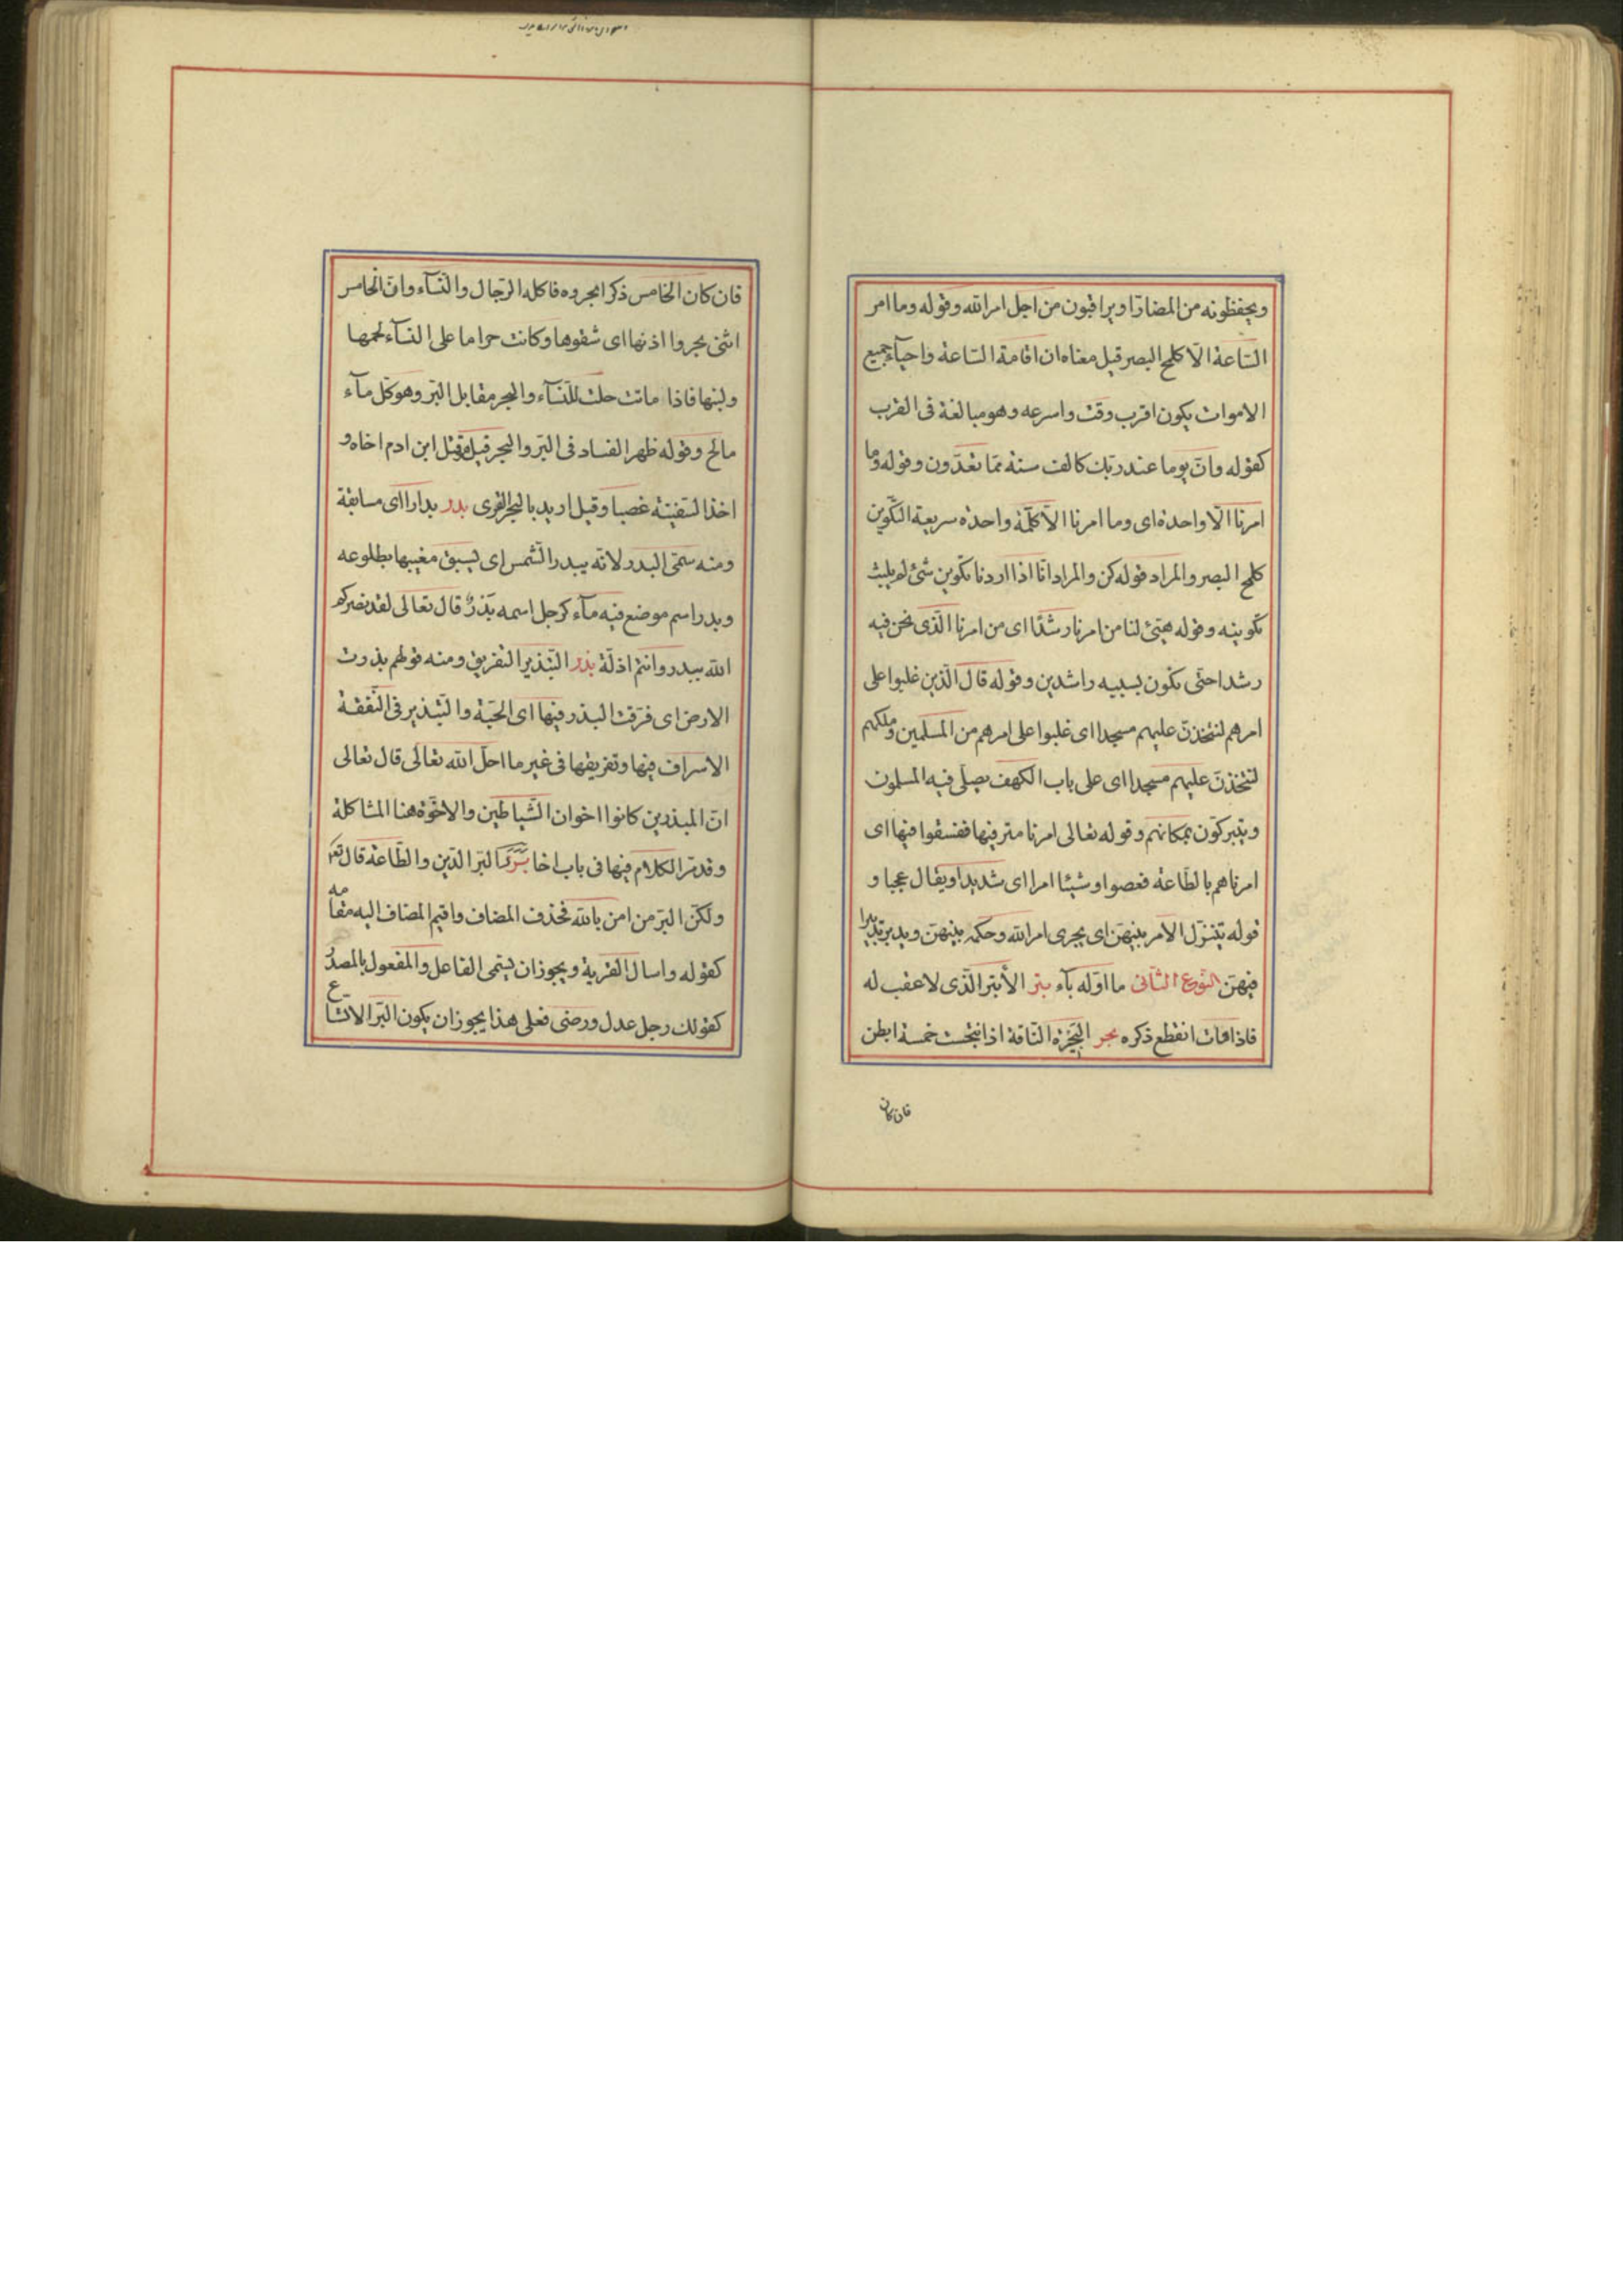 ويحفظونه من المضار او يراقبون من اجل امر الله وقوله وما امر
الساعة الّا كلمح البصر قيل معناه ان اقامة الساعة واحياء جميع
الاموات يكون اقرب وقت واسرعه وهو مبالغة فى القرب
كقوله وانّ يوما عند ربّك كالف سنة ممّا تعدّون وقوله وما
امرنا الّا واحدة اى وما امرنا الّا كلمة واحدة سريعة التّكوين
كلمح البصر والمراد قوله كن والمراد انّا اذا اردنا تكوين شئ لم يلبث
تكوينه وقوله هيّئ لنا من امرنا رشدًا اى من امرنا الّذى نحن فيه
رشدا حتّى نكون بسببه راشدين وقوله قال الّذين غلبوا على
امرهم لنتّخذنّ عليهم مسجدا اى غلبوا على امرهم من المسلمين وملكهم
لنتّخذنّ عليهم مسجدا اى على باب الكهف يصلّى فيه المسلمون
ويتبركّون بمكانهم وقوله تعالى امرنا مترفيها ففسقوا فيها اى
امرناهم بالطّاعة فعصوا وشيئا امرا اى شديدا ويقال عجبا و
قوله يتنزّل الأمر بينهنّ اى يجرى امر الله وحكمه بينهنّ ويدبر تدبيرا
فيهنّ النّوع الثّانى ما اوّله بآء بتر الأبتر الّذى لا عقب له
فاذا مات انقطع ذكره بحر البحيرة النّاقة اذا نتجت خمسة ابطن
فان كان
فان كان الخامس ذكرا بحروه فاكله الرّجال والنّسآء وانّ الخامس
انثى بحروا اذنها اى شقوها وكانت حراما على النسآء لحمها
ولبنها فاذا ماتت حلت للنّسآء والبحر مقابل البرّ وهو كلّ مآء
مالح وقوله ظهر الفساد فى البرّ والبحر قيل هو قتل ابن ادم اخاه و
اخذ السّفينة غصبا وقيل اريد بالبحر القرى بدر بدارا اى مسابقة
ومنه سمّى البدر لانّه يبدر الشّمس اى يسبق مغيبها بطلوعه
وبدر اسم موضع فيه مآء كرجل اسمه بَدْرٌ قال تعالى لقد نصركم
الله ببدر وانتم اذلّة بذر التّبذير التفريق ومنه قولهم بذرت
الارض اى فرّقت البذر فيها اى الحبّة والتّبذير فى النّفقة
الاسراف فيها وتفريقها فى غير ما احلّ الله تعالى قال تعالى
انّ المبذرين كانوا اخوان الشّياطين والاخوّة هنا المشاكلة
وقد مرّ الكلام فيها فى باب اخا برر البرّ الدّين والطّاعة قال تع
ولكنّ البرّ من امن بالله فحذف المضاف واقيم المضاف اليه مقامه
كقوله واسال القرية ويجوز ان يسمّى الفاعل والمفعول بالمصدر
كقولك رجل عدل ورضى فعلى هذا يجوز ان يكون البرّ الاتّساع